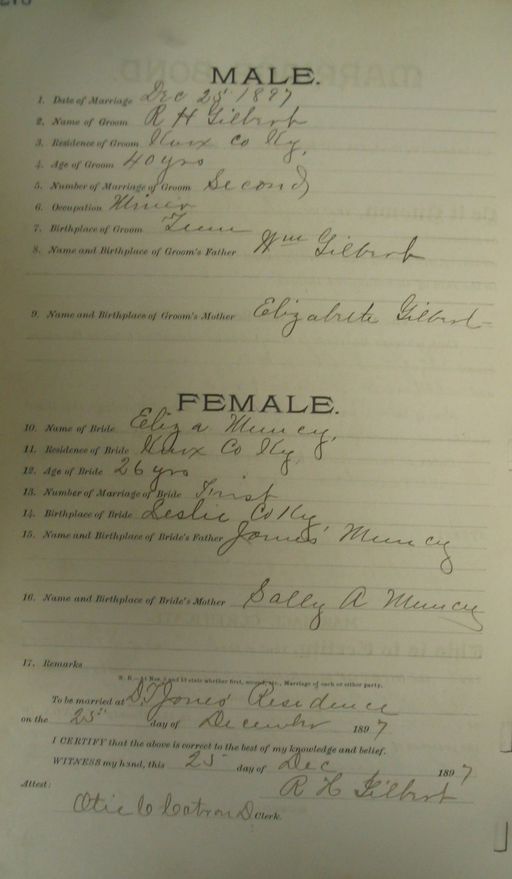 MALE.
1. Date of Marriage Dec 25 1897
2. Name of Groom R H Gilbert
3. Residence of Groom Knox Co Ky,
4. Age of Groom 40 yrs
5. Number of Marriage of Groom Second
6. Occupation Miner
7. Birthplace of Groom Tenn
8. Name and Birthplace of Groom's Father Wm Gilbert
9. Name and Birthplace of Groom's Mother Elizabeth Gilbert
FEMALE.
10. Name of Bride Eliza Muncy,
11. Residence of Bride Knox Co Ky,
12. Age of Bride 26 yrs
13. Number of Marriage of Bride First
14. Birthplace of Bride Leslie Co Ky
15. Name and Birthplace of Bride's Father James Muncy
16. Name and Birthplace of Bride's Mother Sally A Muncy
17. Remarks
N. B.—At Nos. 5 and 13 state whether first, second, etc., Marriage of each or either party.
To be married at D. T. Jones' Residence
on the 25" day of December 1897
I CERTIFY that the above is correct to the best of my knowledge and belief.
WITNESS my hand, this 25 day of Dec 1897
R H Gilbert
Attest:
Catron Clerk.